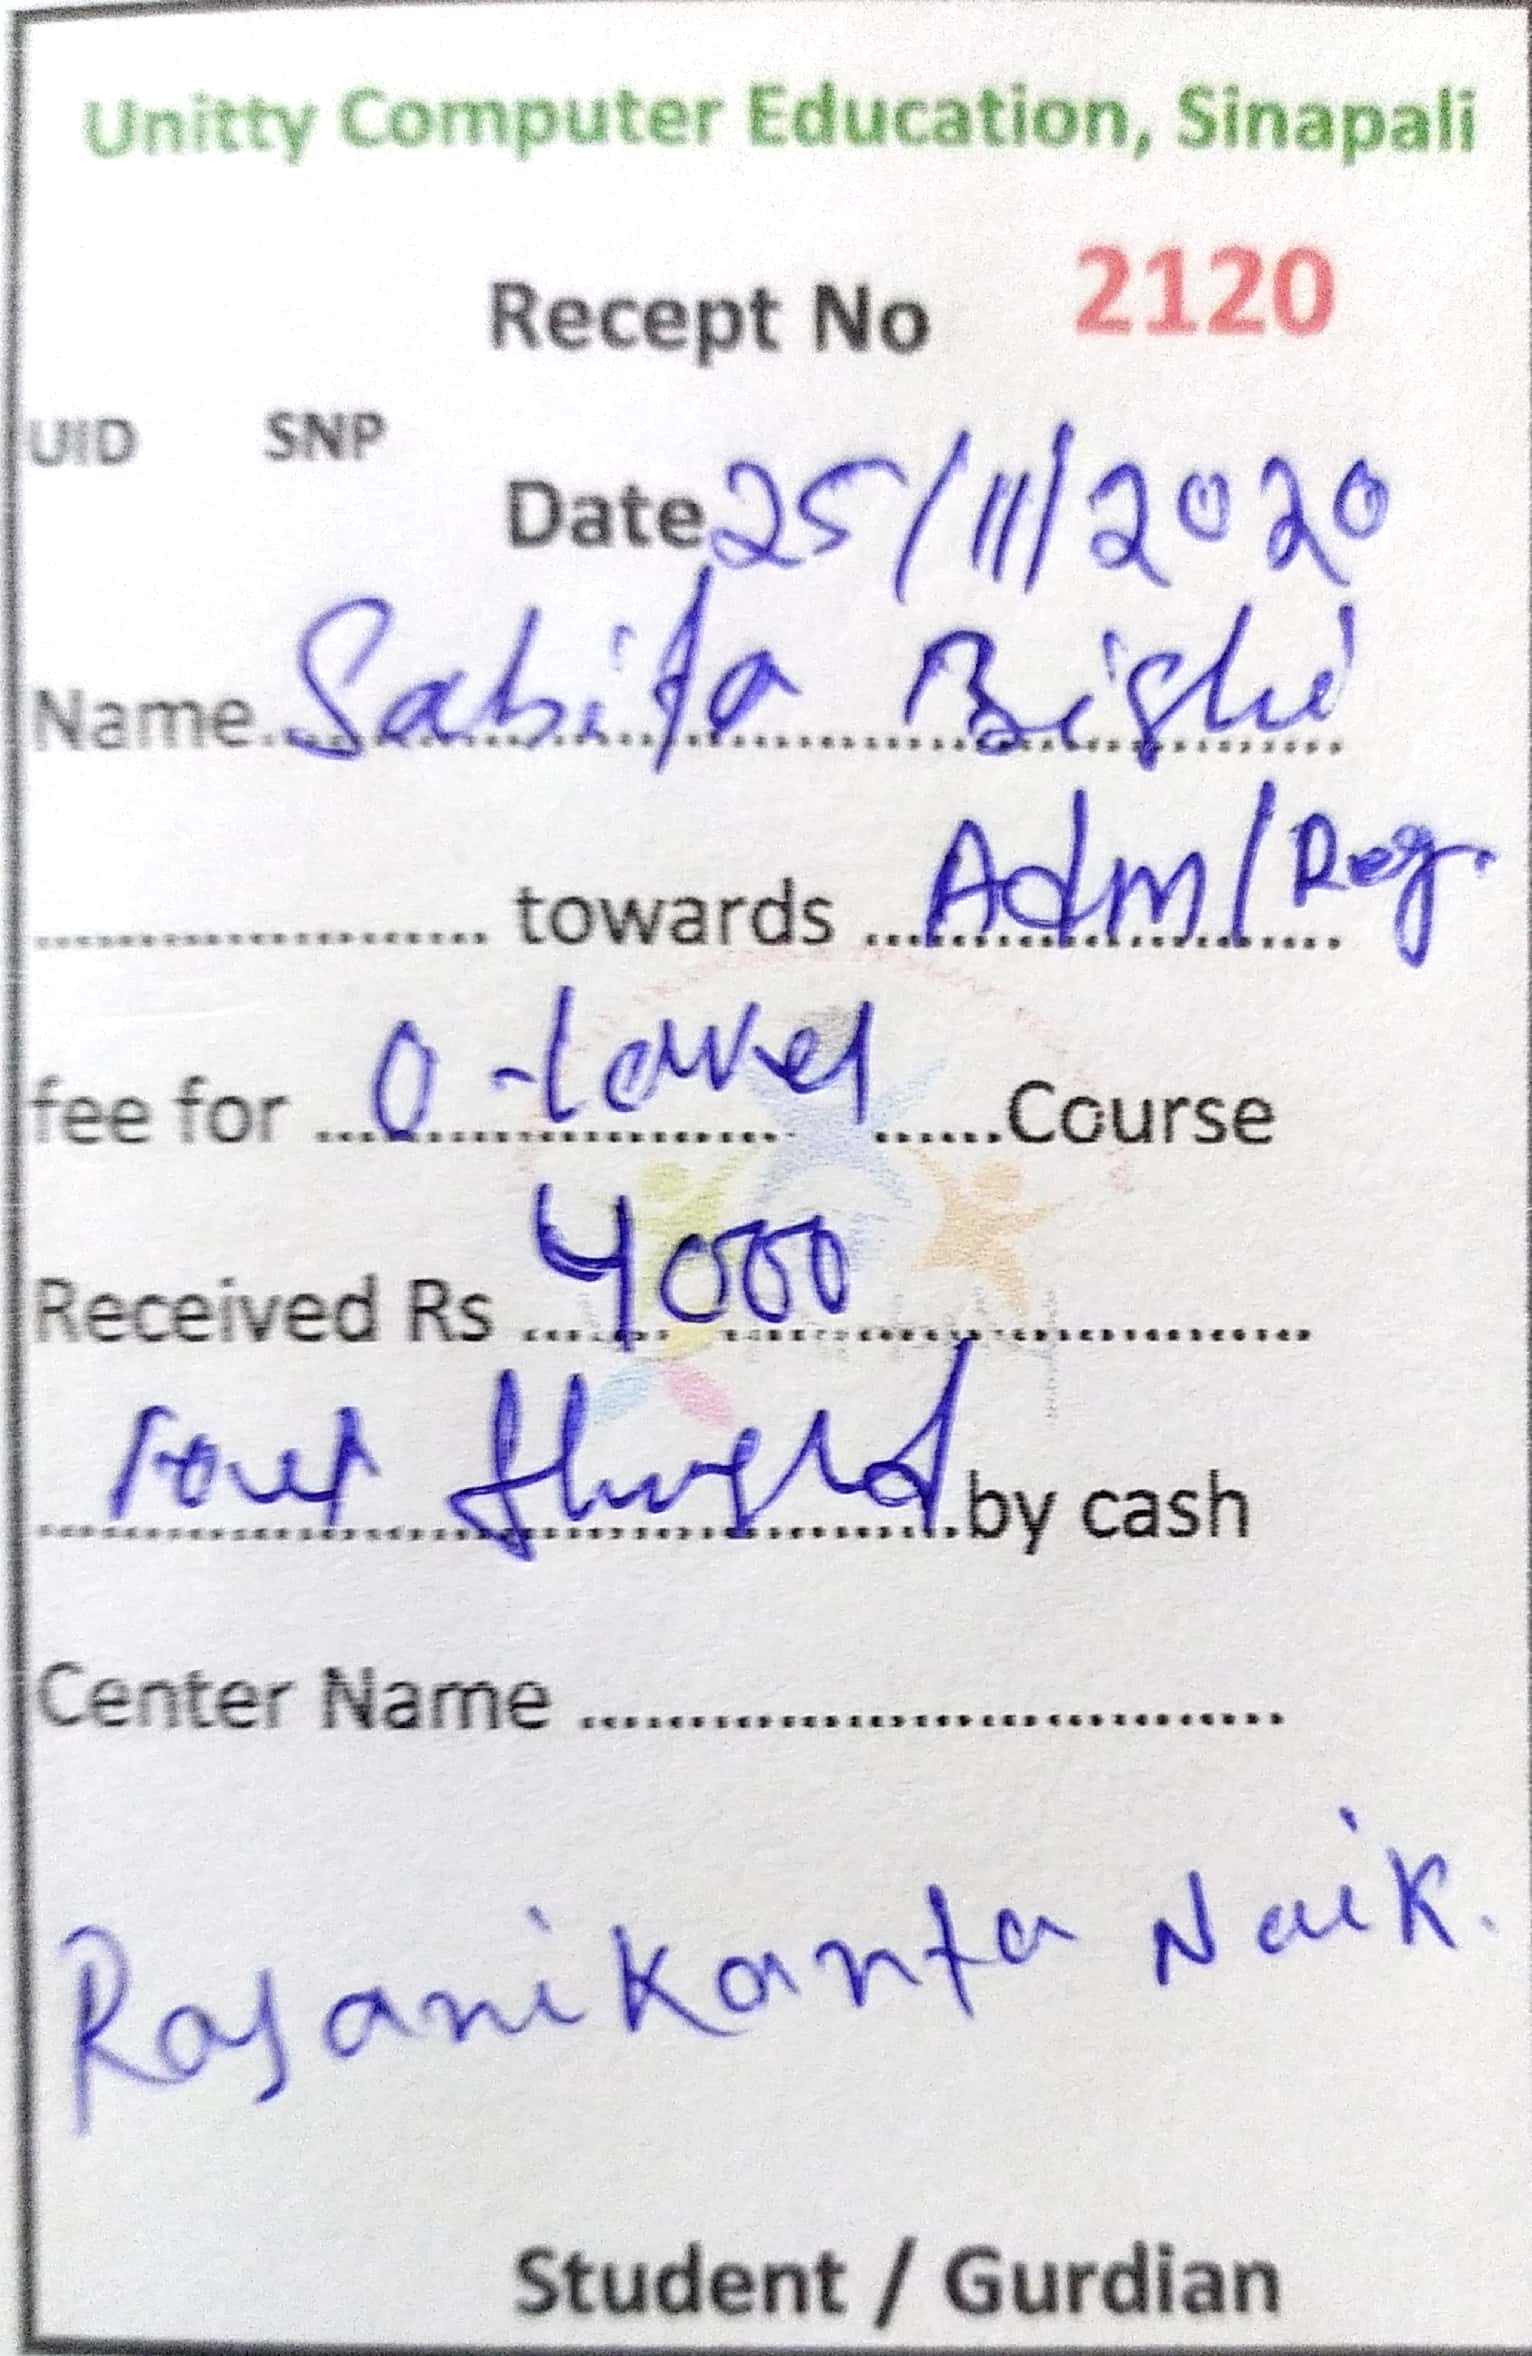 Unitty Computer Education, Sinapali
Recept No 2120
UID SNP
Date 25/11/2020
Name Sabita Bighi
towards Adm/Reg.
fee for O-level Course
Received Rs 4000
four by cash
Center Name
Rajanikanta Naik.
Student / Gurdian